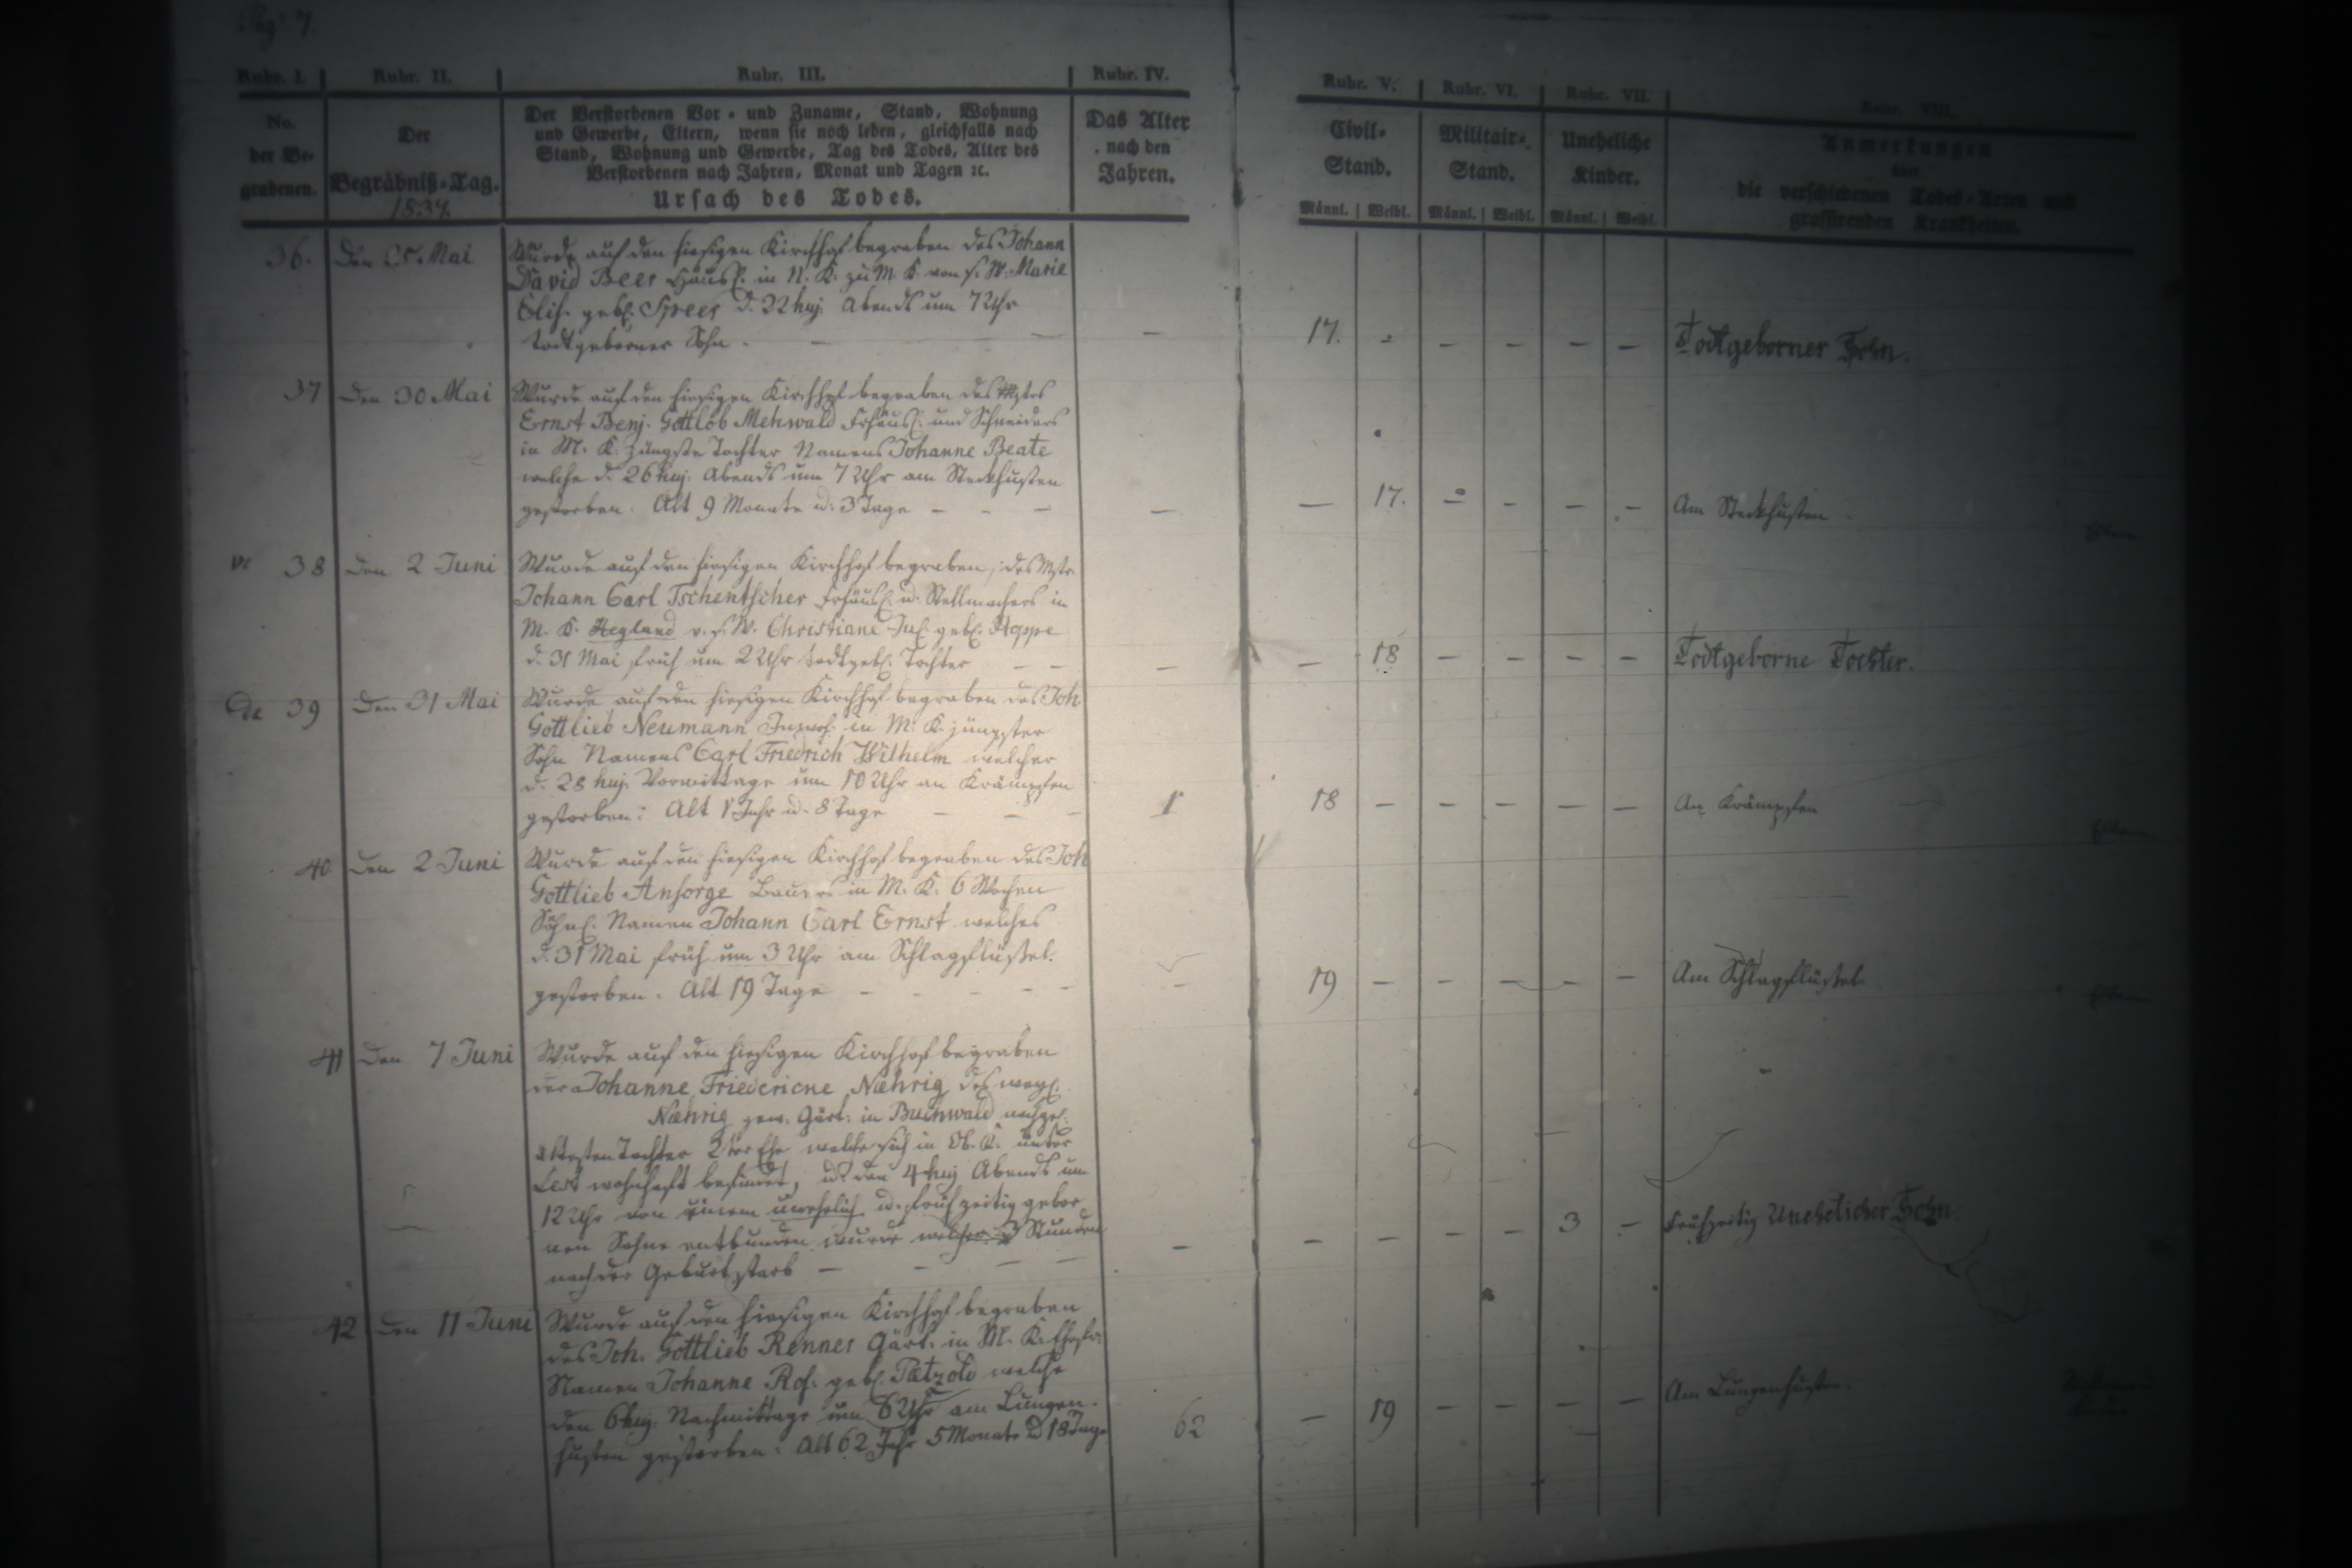 Pag. 7.
Rubr. I. Rubr. II. Rubr. III. Rubr. IV. Rubr. V. Rubr. VI. Rubr. VII. Rubr. VIII.
No. der Be-grabenen.
Der Begräbniß-Tag.
1834.
Der Verstorbenen Vor- und Zuname, Stand, Wohnung
und Gewerbe, Eltern, wenn sie noch leben, gleichfalls nach
Stand, Wohnung und Gewerbe, Tag des Todes, Alter des
Verstorbenen nach Jahren, Monat und Tagen ꝛc.
Ursach des Todes.
Das Alter
nach den
Jahren.
Civil-
Stand.
Männl. Weibl.
Militair-
Stand.
Männl. Weibl.
Uneheliche
Kinder.
Männl. Weibl.
Anmerkungen
über
die verschiedenen Todes-Arten und
grassirenden Krankheiten.
36. Den 25. Mai Wurde auf den hiesigen Kirchhof begraben des Johann
David Beer Häusl. in N. K. zu M. K. von s. W. Marie
Elis. gebl. Speer d. 22 huj. Abends um 7 Uhr
todtgeborner Sohn. — — — 17. - - - - - Todtgeborner Sohn.
37 Den 30 Mai Wurde auf den hiesigen Kirchhof begraben des Mstrs
Ernst Benj. Gottlob Mehwald Frhäusl. und Schneiders
in M. K. jüngste Tochter Namens Johanne Beate
welche d. 26 huj. Abends um 7 Uhr am Steckhusten
gestorben. Alt 9 Monate u. 3 Tage — — — — — 17. - - - - Am Steckhusten
38 Den 2 Juni Wurde auf den hiesigen Kirchhof begraben, des Mstr.
Johann Carl Tschentscher Frhäusl. u. Stellmachers in
M. K. v. s. W. Christiane Jul. gebl. Hoppe
d. 31 Mai früh um 2 Uhr todtgebl. Tochter — — — — 18 - - - - Todtgeborne Tochter.
39 Den 31 Mai Wurde auf den hiesigen Kirchhof begraben des Joh.
Gottlieb Neumann Inwoh. in M. K. jüngster
Sohn Namens Carl Friedrich Wilhelm welcher
d. 28 huj. Vormittags um 10 Uhr an Krämpfen
gestorben: Alt 1 Jahr u. 8 Tage — — — 1 18 - - - - - An Krämpfen
40 Den 2 Juni Wurde auf den hiesigen Kirchhof begraben des Joh
Gottlieb Ansorge Bauers in M. K. 6 Wochen
Söhnl. Namen Johann Carl Ernst welches
d. 31 Mai früh um 3 Uhr am Schlagflüßel.
gestorben. Alt 19 Tage — — — — — 19 - - - - - Am Schlagflüßel.
41 Den 7 Juni Wurde auf den hiesigen Kirchhof begraben
der Johanne Friedericne Næhrig des weyl.
Næhrig gew. Gärt. in Buchwald nachgel.
ältesten Tochter 2ter Ehe welche sich in Ob. K. unter
wohnhaft befindet, u. den 4 huj Abends um
12 Uhr von einem unehelich u. frühzeitig gebor
nen Sohne entbunden wurde welcher 3 Stunden
nach der Geburt starb — — — — — - - - - 3 - Frühzeitig Unehelicher Sohn.
42 Den 11 Juni Wurde auf den hiesigen Kirchhof begraben
des Joh. Gottlieb Renner Gärt. in M. K.
Namen Johanne Ros. gebl. Pätzold welche
den 6 huj. Nachmittags um 6 Uhr am Lungen-
husten gestorben: Alt 62 Jahr 5 Monate u 18 Tage 62 — 19 - - - - Am Lungenhusten.